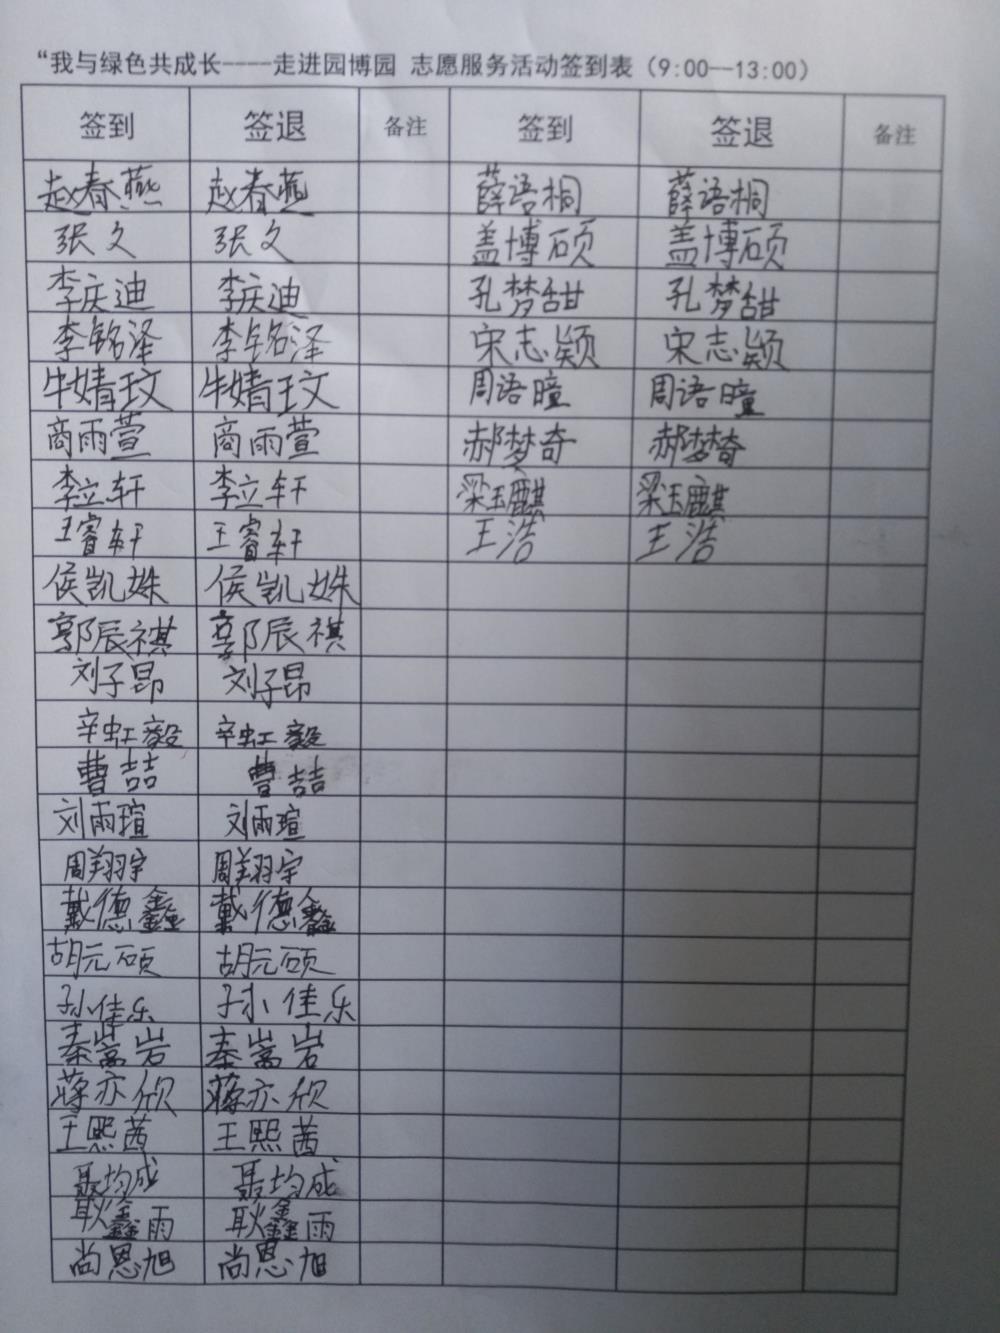 “我与绿色共成长----走进园博园 志愿服务活动签到表（9:00--13:00）
签到 签退 备注 签到 签退 备注
赵春燕 赵春燕 薛语桐 薛语桐
张文 张文 盖博硕 盖博硕
李庆迪 李庆迪 孔梦甜 孔梦甜
李铭泽 李铭泽 宋志颖 宋志颖
牛婧玟 牛婧玟 周语瞳 周语瞳
商雨萱 商雨萱 郝梦奇 郝梦奇
李立轩 李立轩 梁玉麒 梁玉麒
王睿轩 王睿轩 王浩 王浩
侯凯姝 侯凯姝
郭辰祺 郭辰祺
刘子昂 刘子昂
辛虹毅 辛虹毅
曹喆 曹喆
刘雨瑄 刘雨瑄
周翔宇 周翔宇
戴德鑫 戴德鑫
胡元硕 胡元硕
孙佳乐 孙佳乐
秦嵩岩 秦嵩岩
蒋亦欣 蒋亦欣
王熙茜 王熙茜
聂均成 聂均成
耿鑫雨 耿鑫雨
尚恩旭 尚恩旭